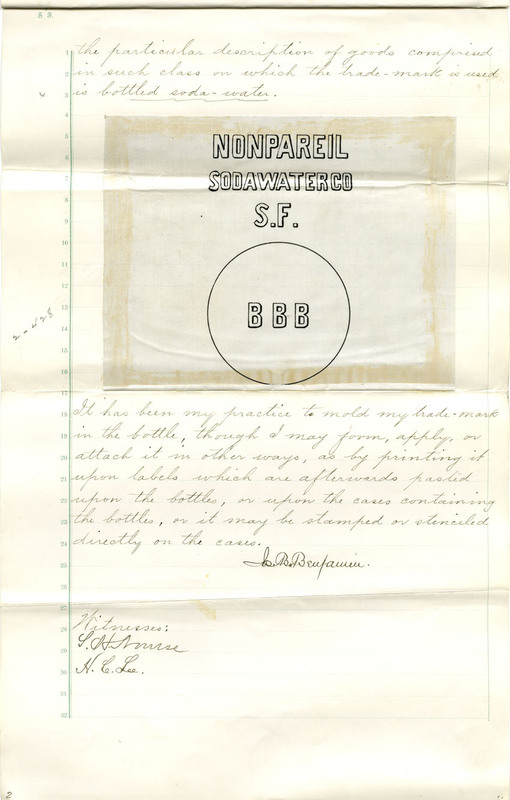 the particular description of goods comprised
in such class on which the trade-mark is used
is bottled soda-water.
NONPAREIL
SODAWATERCO
S.F.
BBB
It has been my practice to mold my trade-mark
in the bottle, though I may form, apply, or
attach it in other ways, as by printing it
upon labels which are afterwards pasted
upon the bottles, or upon the cases containing
the bottles, or it may be stamped or stenciled
directly on the cases.
B. Benjamin.
Witnesses:
S. H. Nourse
H. C. Lee.
2-428
1
2
3
4
5
6
7
8
9
10
11
12
13
14
15
16
17
18
19
20
21
22
23
24
25
26
27
28
29
30
31
32
2